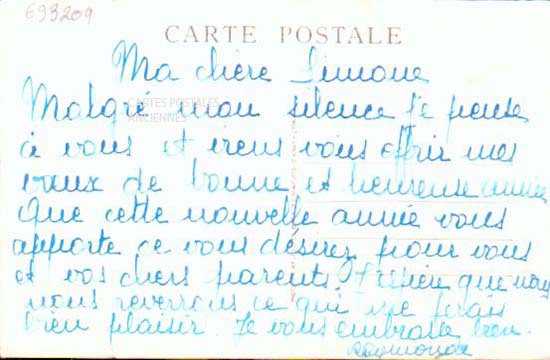 693209
CARTE POSTALE
Ma chère Simone
CARTES POSTALES
ANCIENNES
Malgré mon silence je pense
à vous et viens vous offrir mes
vœux de bonne et heureuse année
Que cette nouvelle année vous
apporte ce vous désirez pour vous
et vos chers parents. J'espère que nous
nous reverrons ce qui me ferais
bien plaisir. Je vous embrasse bien.
Raymonde